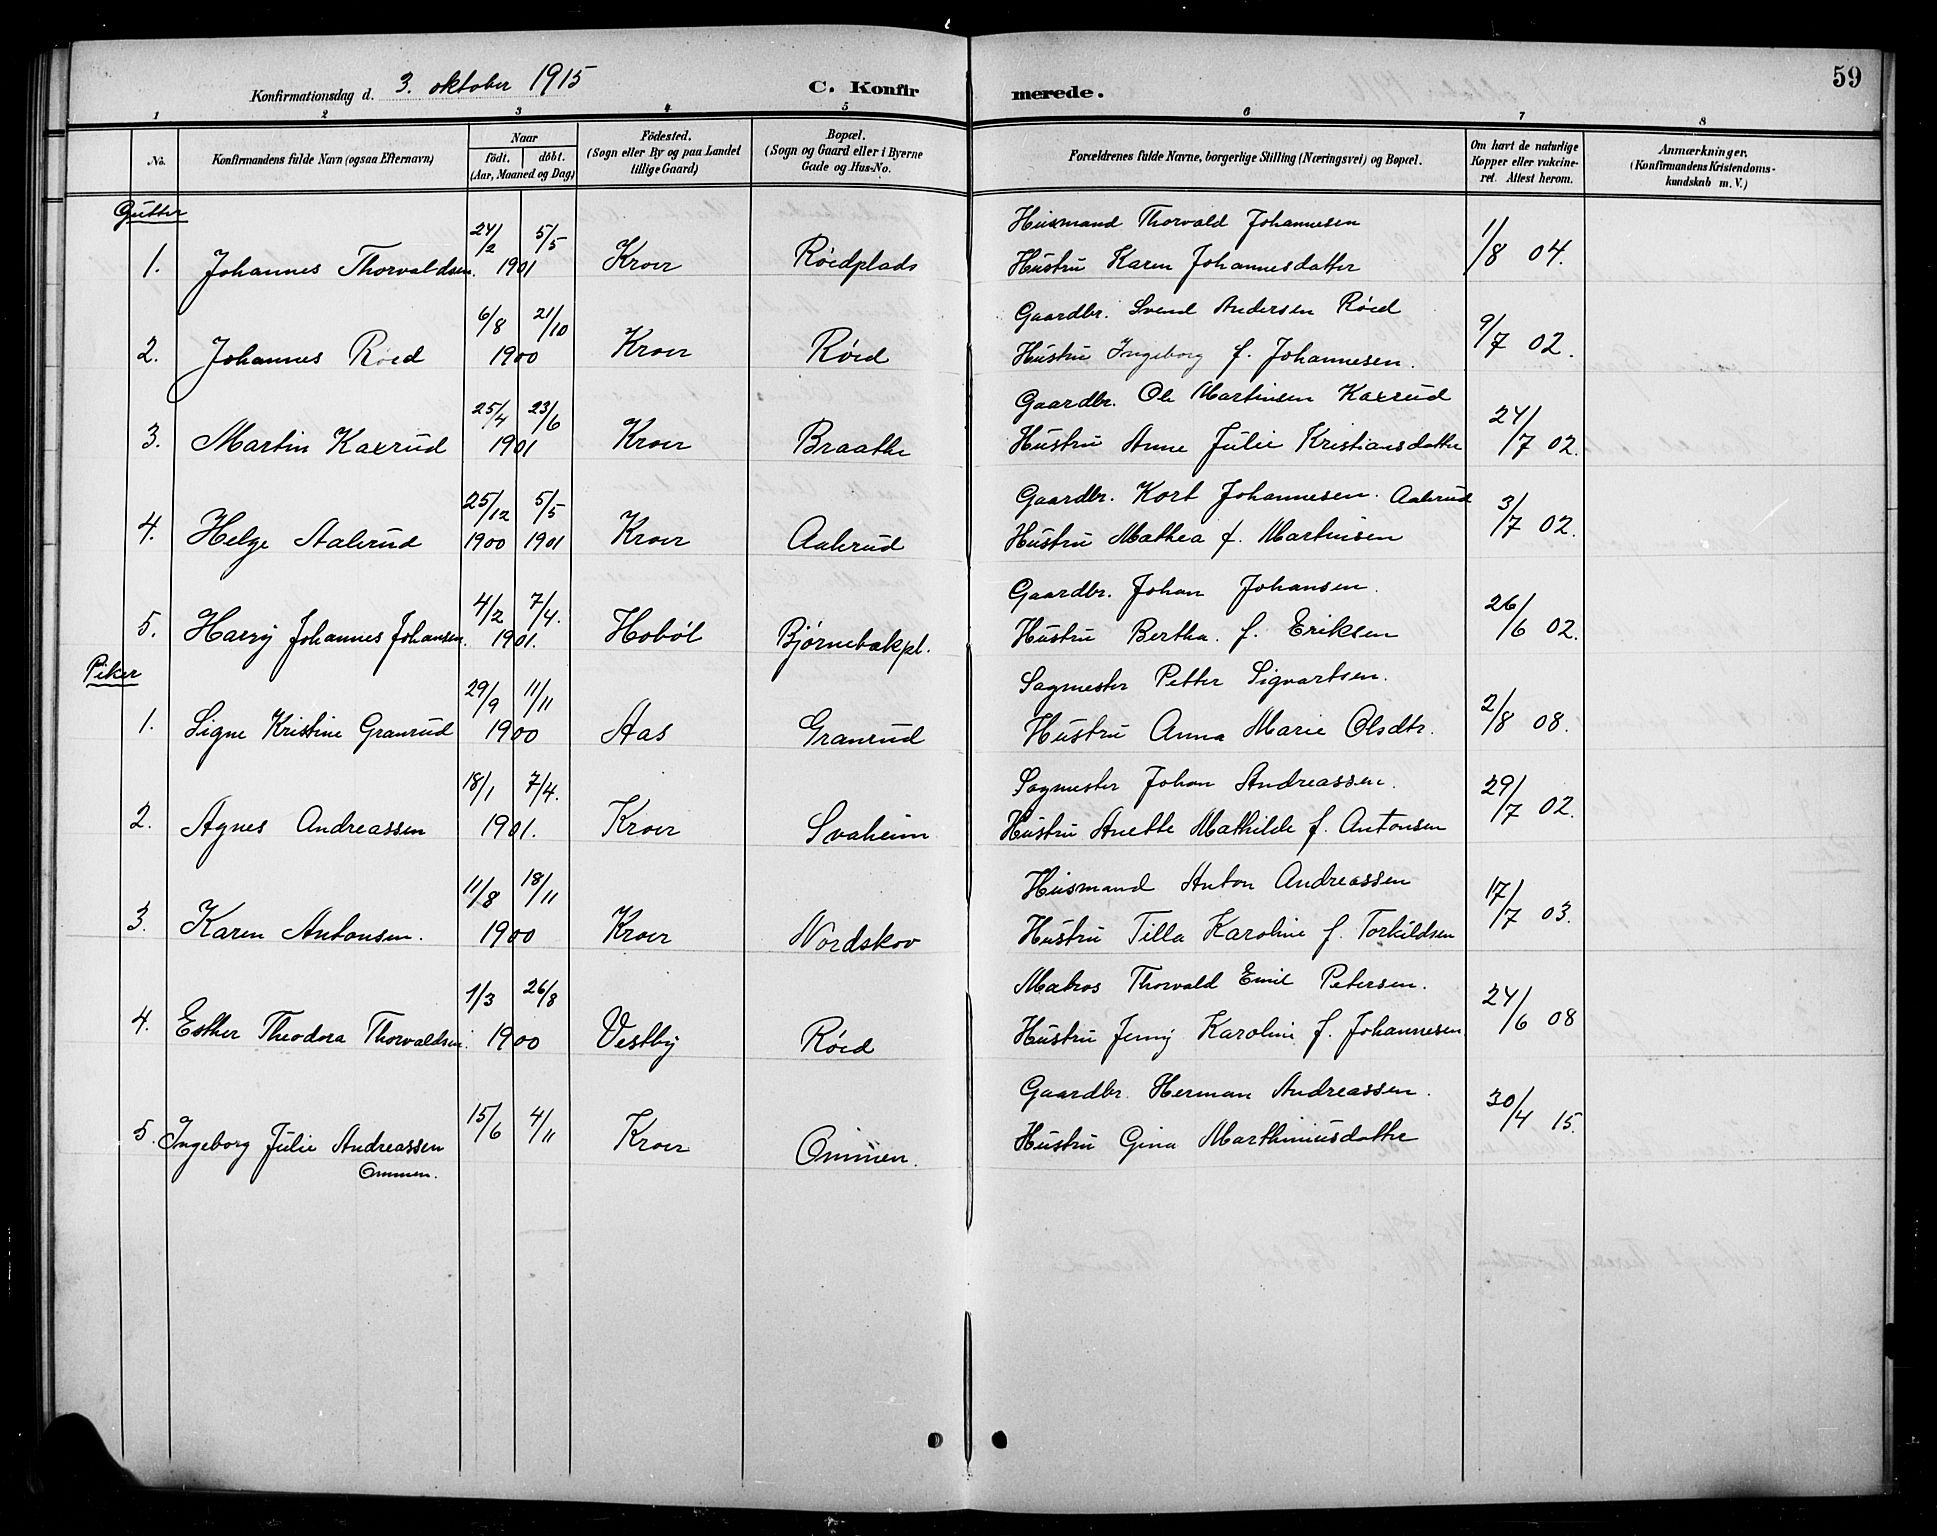 59
Konfirmationsdag d. 3. oktober 1915 C. Konfirmerede.
1 2 3 4 5 6 7 8
No.
Konfirmandens fulde Navn (ogsaa Efternavn)
Naar
födt. döbt.
(Aar, Maaned og Dag)
Födested.
(Sogn eller By og paa Landet
tillige Gaard)
Bopæl.
(Sogn og Gaard eller i Byerne
Gade og Hus-No.
Forældrenes fulde Navne, borgerlige Stilling (Næringsvei) og Bopæl.
Om havt de naturlige
Kopper eller vakcine-
ret. Attest herom.
Anmærkninger.
(Konfirmandens Kristendoms-
kundskab m. V.)
Gutter
24/2 5/5 Husmand Thorvald Johannesen
1. Johannes Thorvaldsen. 1901 Kroer Røedplads Hustru Karen Johannesdatter 1/8 04.
6/8 21/10 Gaardbr. Svend Andersen Røed
2. Johannes Røed 1900 Kroer Røed Hustru Ingeborg f. Johannesen. 9/7 02.
25/4 23/6 Gaardbr. Ole Martinsen Kaxrud
3. Martin Kaxrud 1901 Kroer Braathe Hustru Anne Julie Kristiansdatter 24/7 02.
25/12 5/5 Gaardbr. Kort Johannesen. Aakrud
4. Helge Aakrud 1900 1901 Kroer Aakrud Hustru Mathea f. Martinsen 3/7 02.
4/2 7/4. Gaardbr. Johan Johansen.
5. Harry Johannes Johansen. 1901. Hobøl Bjørnebækpl. Hustru Bertha. f. Eriksen 26/6 02.
Piker
29/9 11/11 Sagmester Petter Sigvartsen.
1. Signe Kristine Granrud 1900 Aas Granrud Hustru Anna Marie Olsdtr. 2/8 08.
18/1 7/4. Sagmester Johan Andreassen.
2. Agnes Andreassen 1901. Kroer Svaheim Hustru Anette Mathilde f. Antonsen 29/7 02.
11/8 18/11 Husmand Anton Andreassen
3. Karen Antonsen. 1900 Kroer Nordskov Hustru Tilla Karoline f. Torkildsen 17/7 03.
1/3 26/8 Matros Thorvald Emil Petersen.
4. Esther Theodora Thorvaldsen. 1900 Vestby Røed Hustru Jenny Karoline f. Johannesen 24/6 08
15/6 4/11 Gaardbr. Herman Andreassen.
5. Ingeborg Julie Andreassen Kroer Ommen. Hustru Gina Marthiniusdatter 30/4 15.
Ommen.